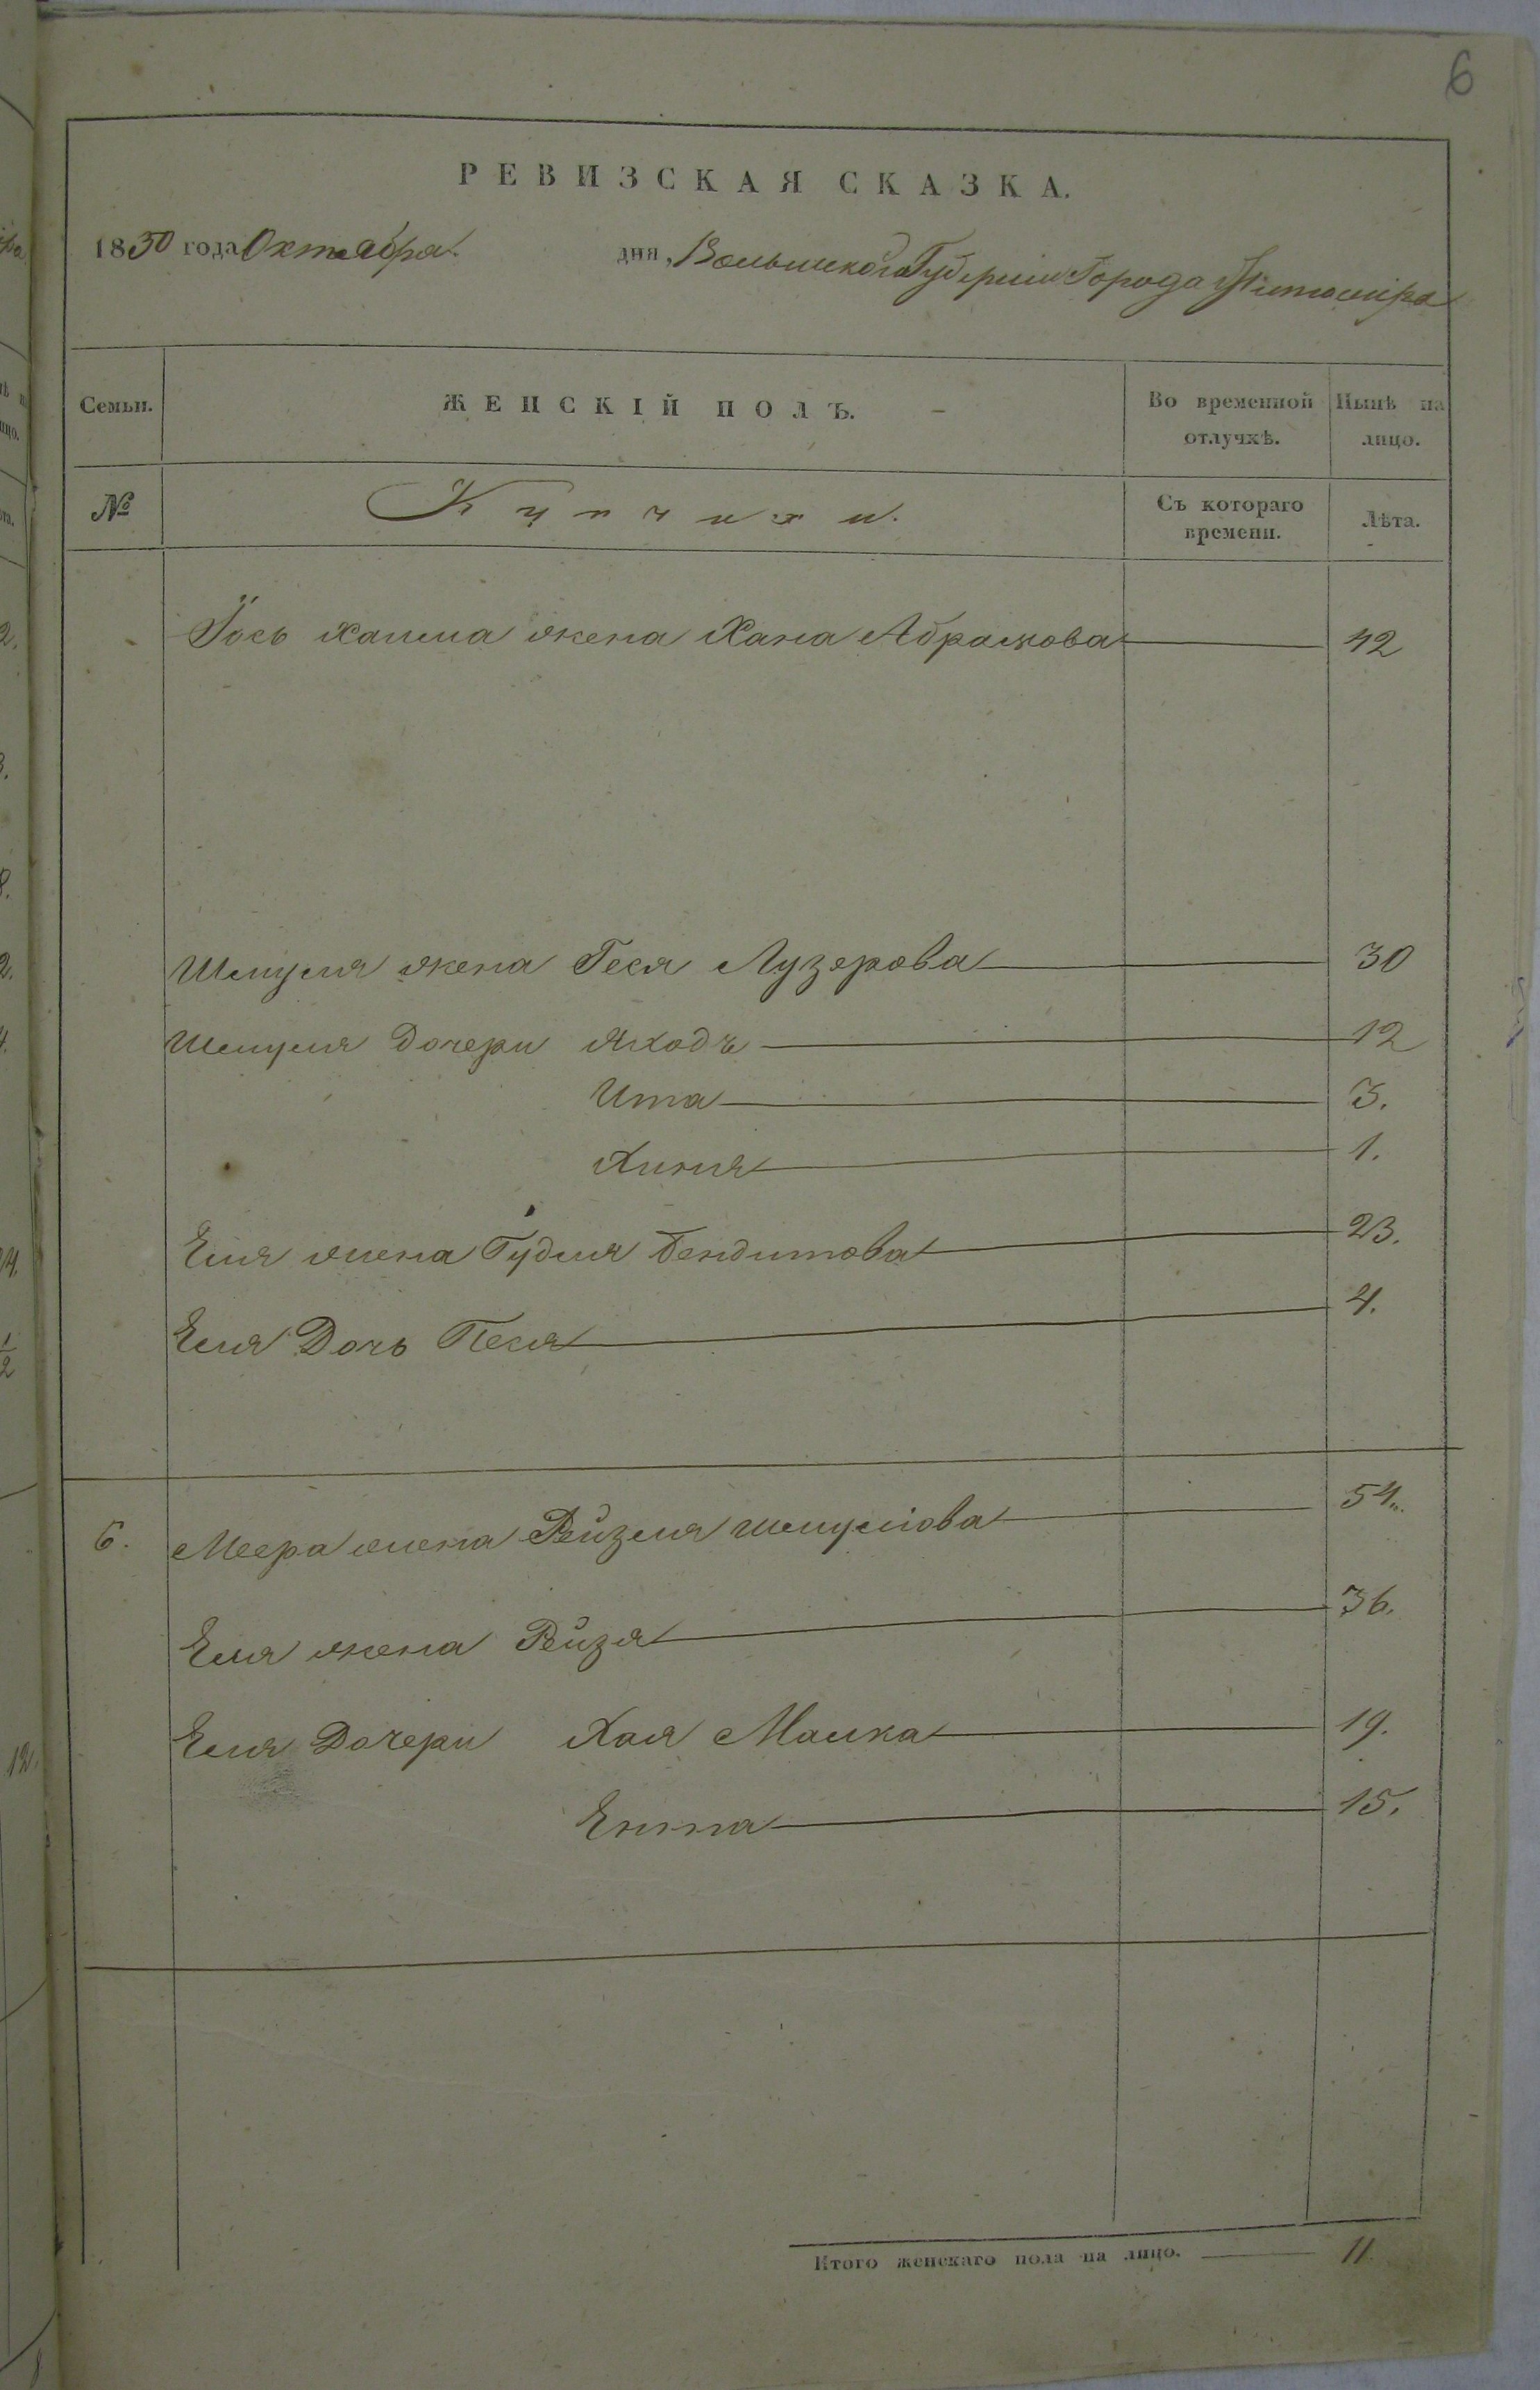 6
РЕВИЗСКАЯ СКАЗКА.
1850 года Октября дня, Волынской Губерніи Города Житоміра
Семьи. ЖЕНСКІЙ ПОЛЪ. Во временной отлучкѣ. Нынѣ на лицо.
№ Купчихи. Съ котораго времени. Лѣта.
Іось Хаима жена Хана Абрамова 42
Шмуля жена Геся Лузерова 30
Шмуля Дочери Яходъ 12
Ита 3.
Хиня 1.
Еля жена Гудля Бендитова 23.
Еля Дочь Песя 4.
6. Меера жена Рейзля Шмулiова 54.
Еля жена Рейзя 36.
Еля Дочери Хая Малка 19.
Ента 15.
Итого женскаго пола на лицо. 11